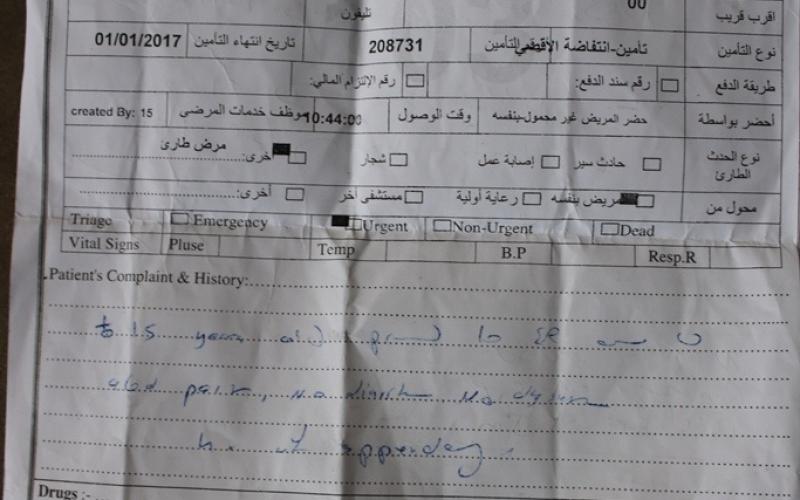 00
اقرب قريب
تليفون
نوع التأمين تأمين-انتفاضة التأمين 208731 تاريخ انتهاء التأمين 01/01/2017
طريقة الدفع رقم سند الدفع: رقم الإلتزام المالي:
أحضر بواسطة حضر المريض غير محمول-بنفسه وقت الوصول 10:44:00 موظف خدمات المرضى created By: 15
نوع الحدث الطارئ حادث سير إصابة عمل شجار أخرى: مرض طارئ
محول من مريض بنفسه رعاية أولية مستشفى أخر أخرى:
Triage Emergency Urgent Non-Urgent Dead
Vital Signs Pluse Temp B.P Resp.R
Patient's Complaint & History:
15 years old to ER
abd pain, no No
Drugs :-